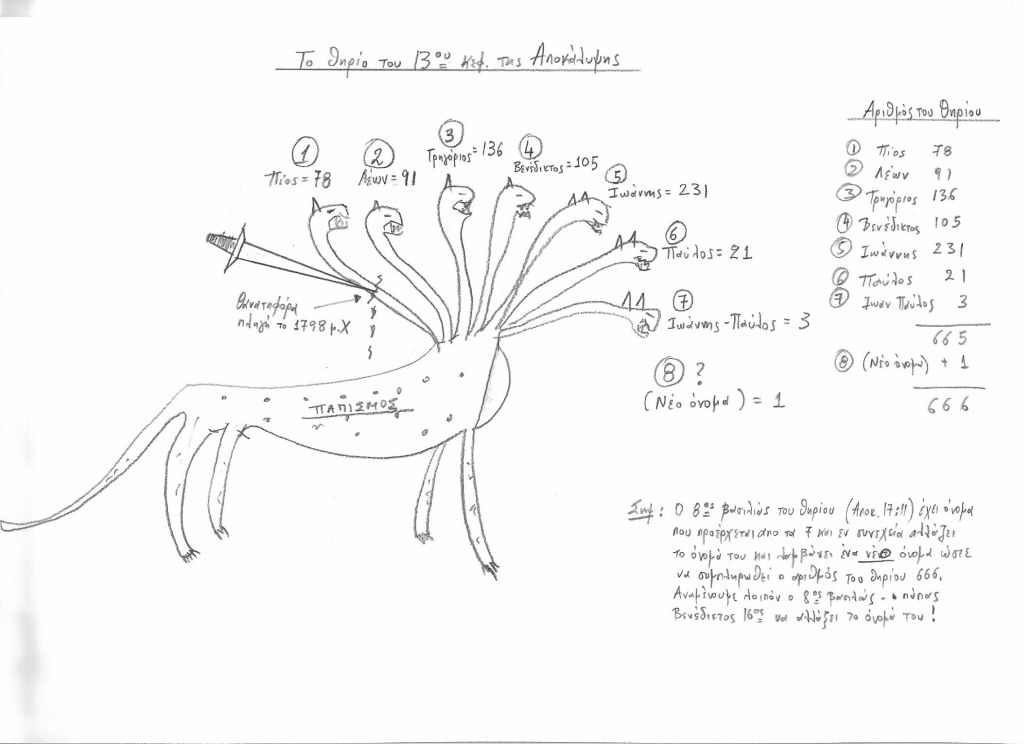 Το θηρίο του 13ου κεφ. της Αποκάλυψης
① Πίος = 78
② Λέων = 91
③ Γρηγόριος = 136
④ Βενέδικτος = 105
⑤ Ιωάννης = 231
⑥ Παύλος = 21
⑦ Ιωάννης - Παύλος = 3
⑧ ?
(Νέο όνομα) = 1
θανατηφόρα
πληγή το 1798 μ.Χ
ΠΑΠΙΣΜΟΣ
Αριθμός του Θηρίου
① Πίος 78
② Λέων 91
③ Γρηγόριος 136
④ Βενέδικτος 105
⑤ Ιωάννης 231
⑥ Παύλος 21
⑦ Ιωαν Παύλος 3
665
⑧ (Νέο όνομα) + 1
666
Σημ: Ο 8ος βασιλιάς του θηρίου (Αποκ. 17:11) έχει όνομα
που προέρχεται απο τα 7 και εν συνεχεία αλλάζει
το όνομά του και λαμβάνει ένα νέο όνομα ώστε
να συμπληρωθεί ο αριθμός του θηρίου 666.
Αναμένουμε λοιπόν ο 8ος βασιλιάς - ο πάπας
Βενέδικτος 16ος να αλλάξει το όνομά του!